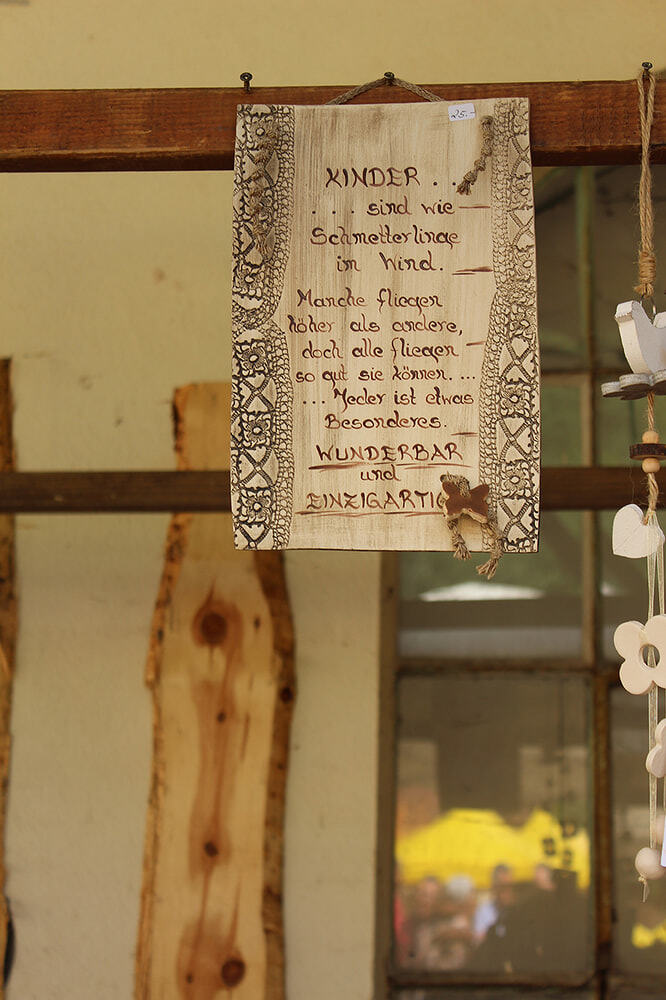 25.-
KINDER . .
. . . sind wie
Schmetterlinge
im Wind.
Manche fliegen
höher als andere,
doch alle fliegen
so gut sie können. ...
... Jeder ist etwas
Besonderes.
WUNDERBAR
und
EINZIGARTIG